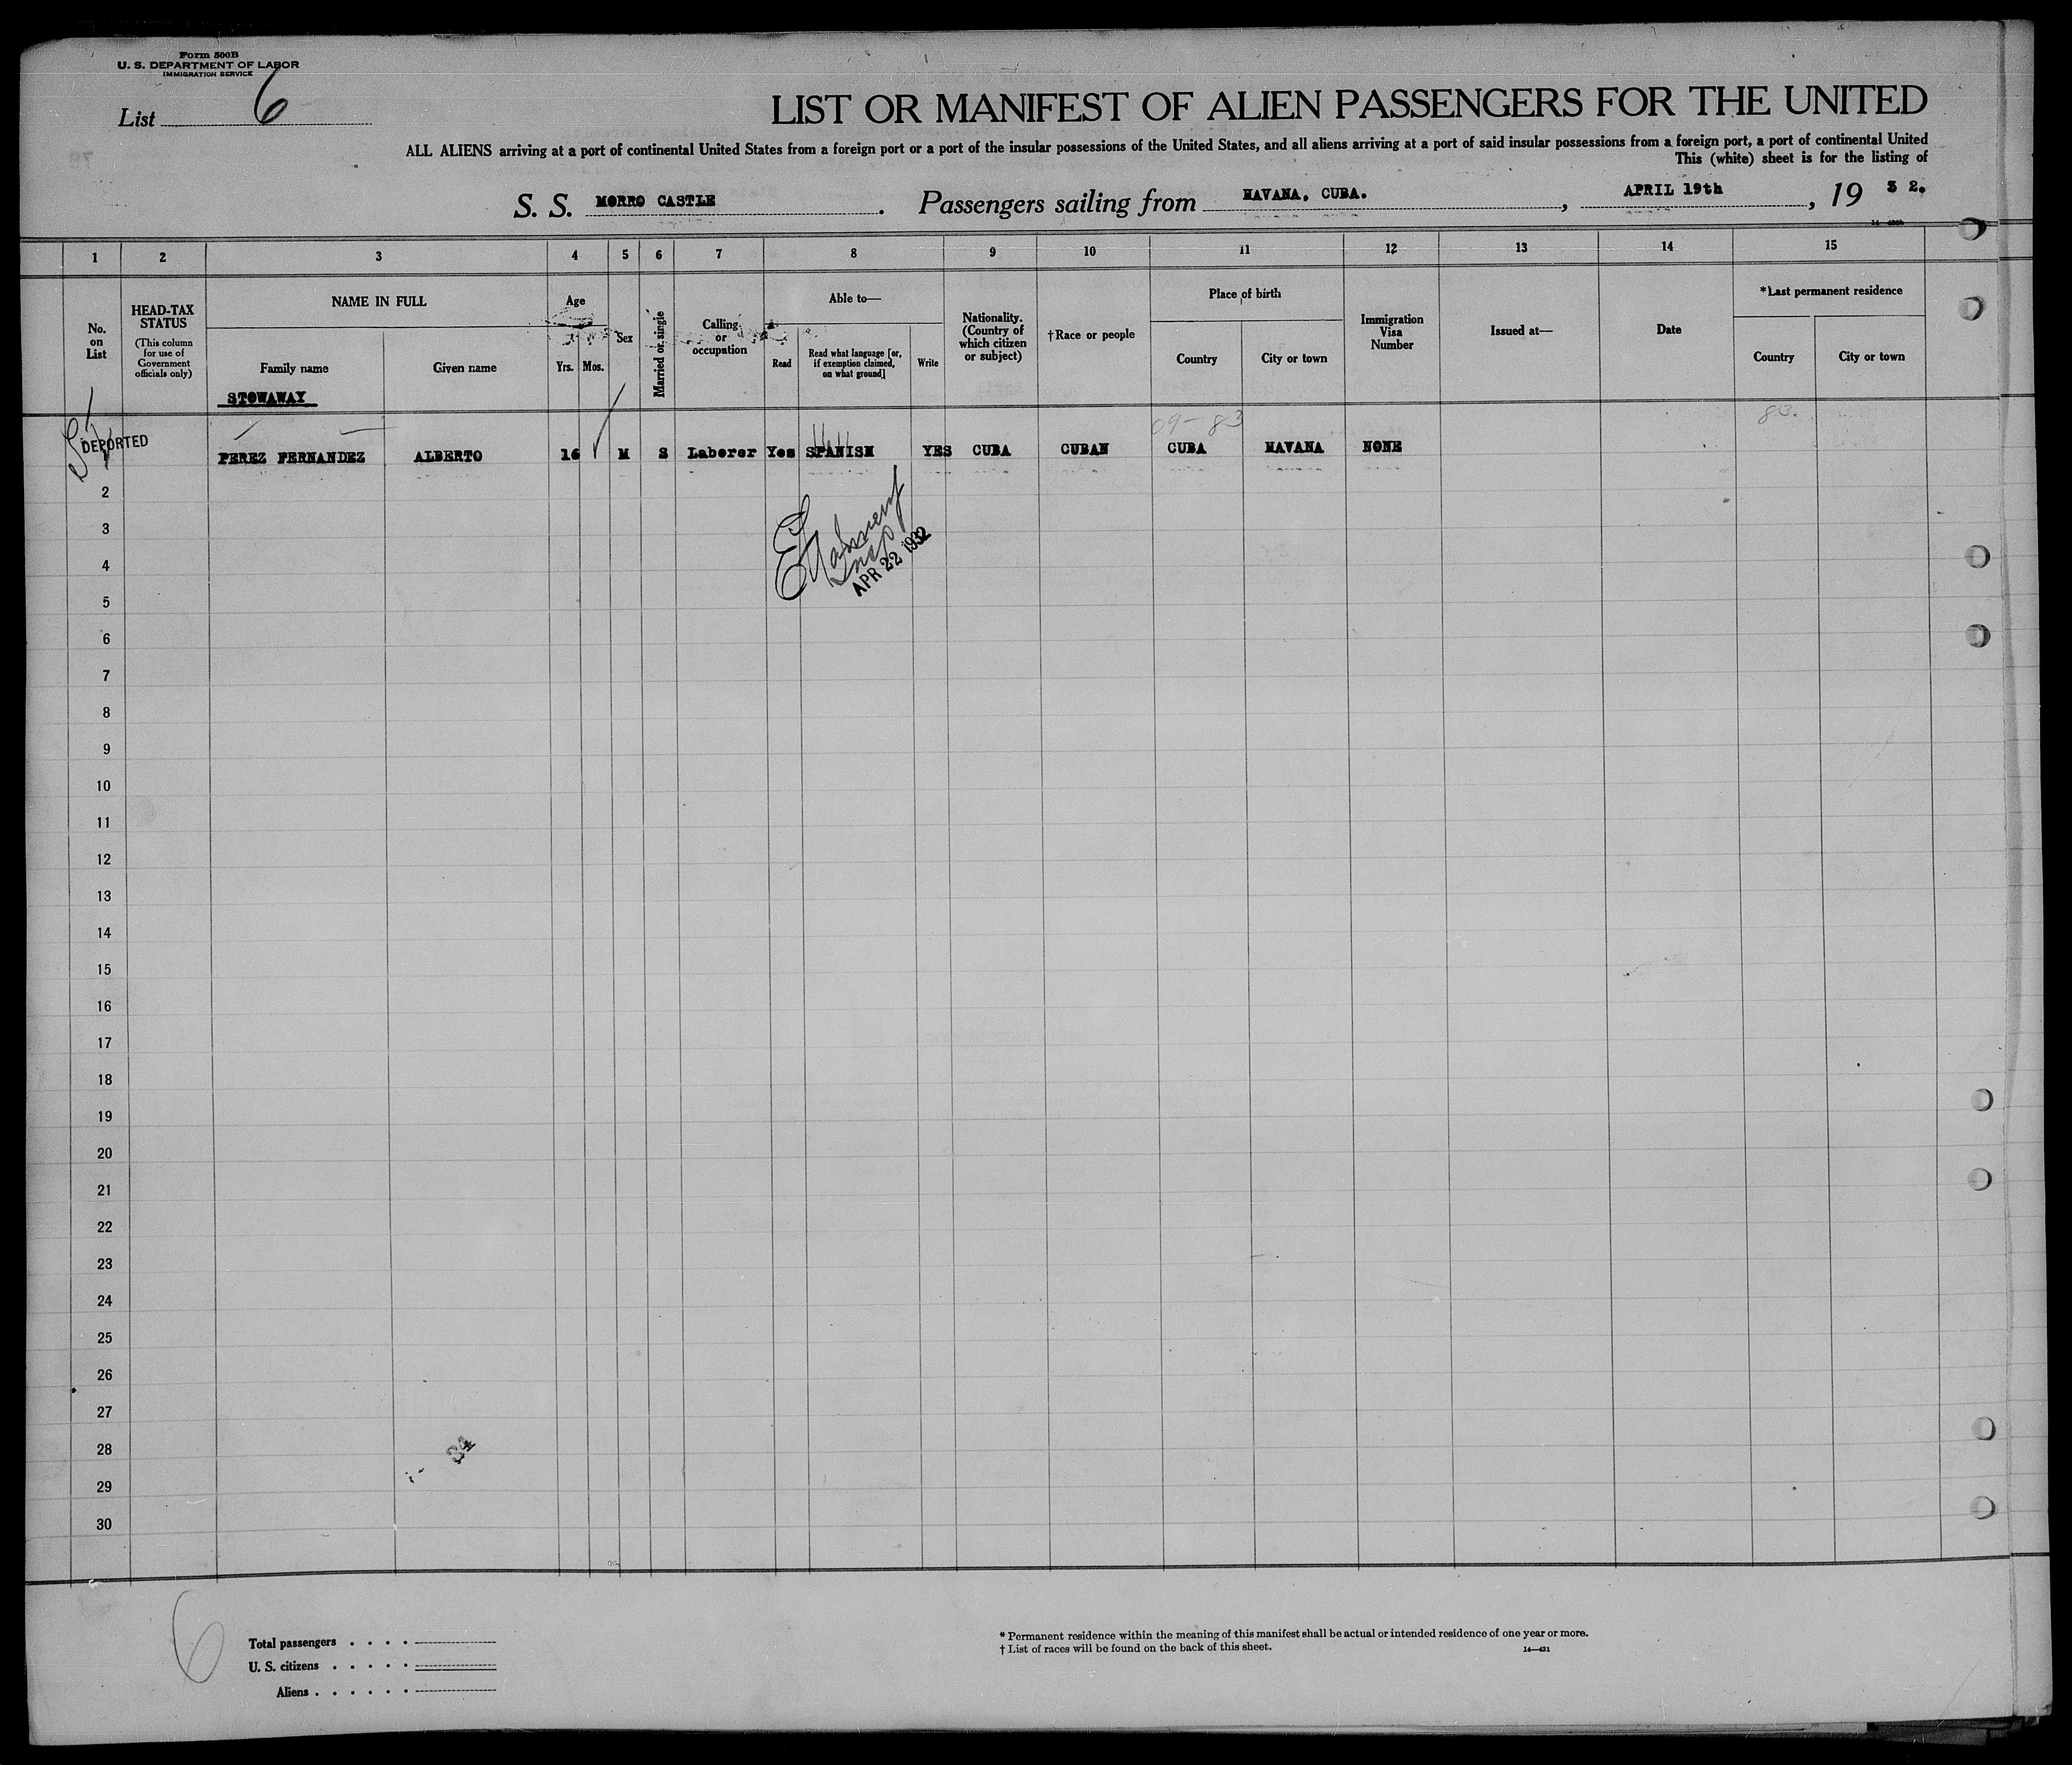 Form 500B
U. S. DEPARTMENT OF LABOR
IMMIGRATION SERVICE
List 6
LIST OR MANIFEST OF ALIEN PASSENGERS FOR THE UNITED
ALL ALIENS arriving at a port of continental United States from a foreign port or a port of the insular possessions of the United States, and all aliens arriving at a port of said insular possessions from a foreign port, a port of continental United
This (white) sheet is for the listing of
S. S. MORRO CASTLE. Passengers sailing from HAVANA, CUBA., APRIL 19th, 19 3 2.
1 2 3 4 5 6 7 8 9 10 11 12 13 14 15
No. on List
HEAD-TAX STATUS
(This column for use of Government officials only)
NAME IN FULL
Family name
Given name
Age
Yrs. Mos.
Sex
Married or single
Calling or occupation
Able to—
Read
Read what language [or, if exemption claimed, on what ground]
Write
Nationality. (Country of which citizen or subject)
†Race or people
Place of birth
Country
City or town
Immigration Visa Number
Issued at—
Date
*Last permanent residence
Country
City or town
STOWAWAY
09-83
83.
DEPORTED
PEREZ FERNANDEZ ALBERTO 16 M S Laborer Yes SPANISH YES CUBA CUBAN CUBA HAVANA NONE
2
3
Insp
APR 22 1932
4
5
6
7
8
9
10
11
12
13
14
15
16
17
18
19
20
21
22
23
24
25
26
27
28
34
29
30
6
Total passengers . . . .
U. S. citizens . . . . .
Aliens . . . . . .
* Permanent residence within the meaning of this manifest shall be actual or intended residence of one year or more.
† List of races will be found on the back of this sheet.
14—431